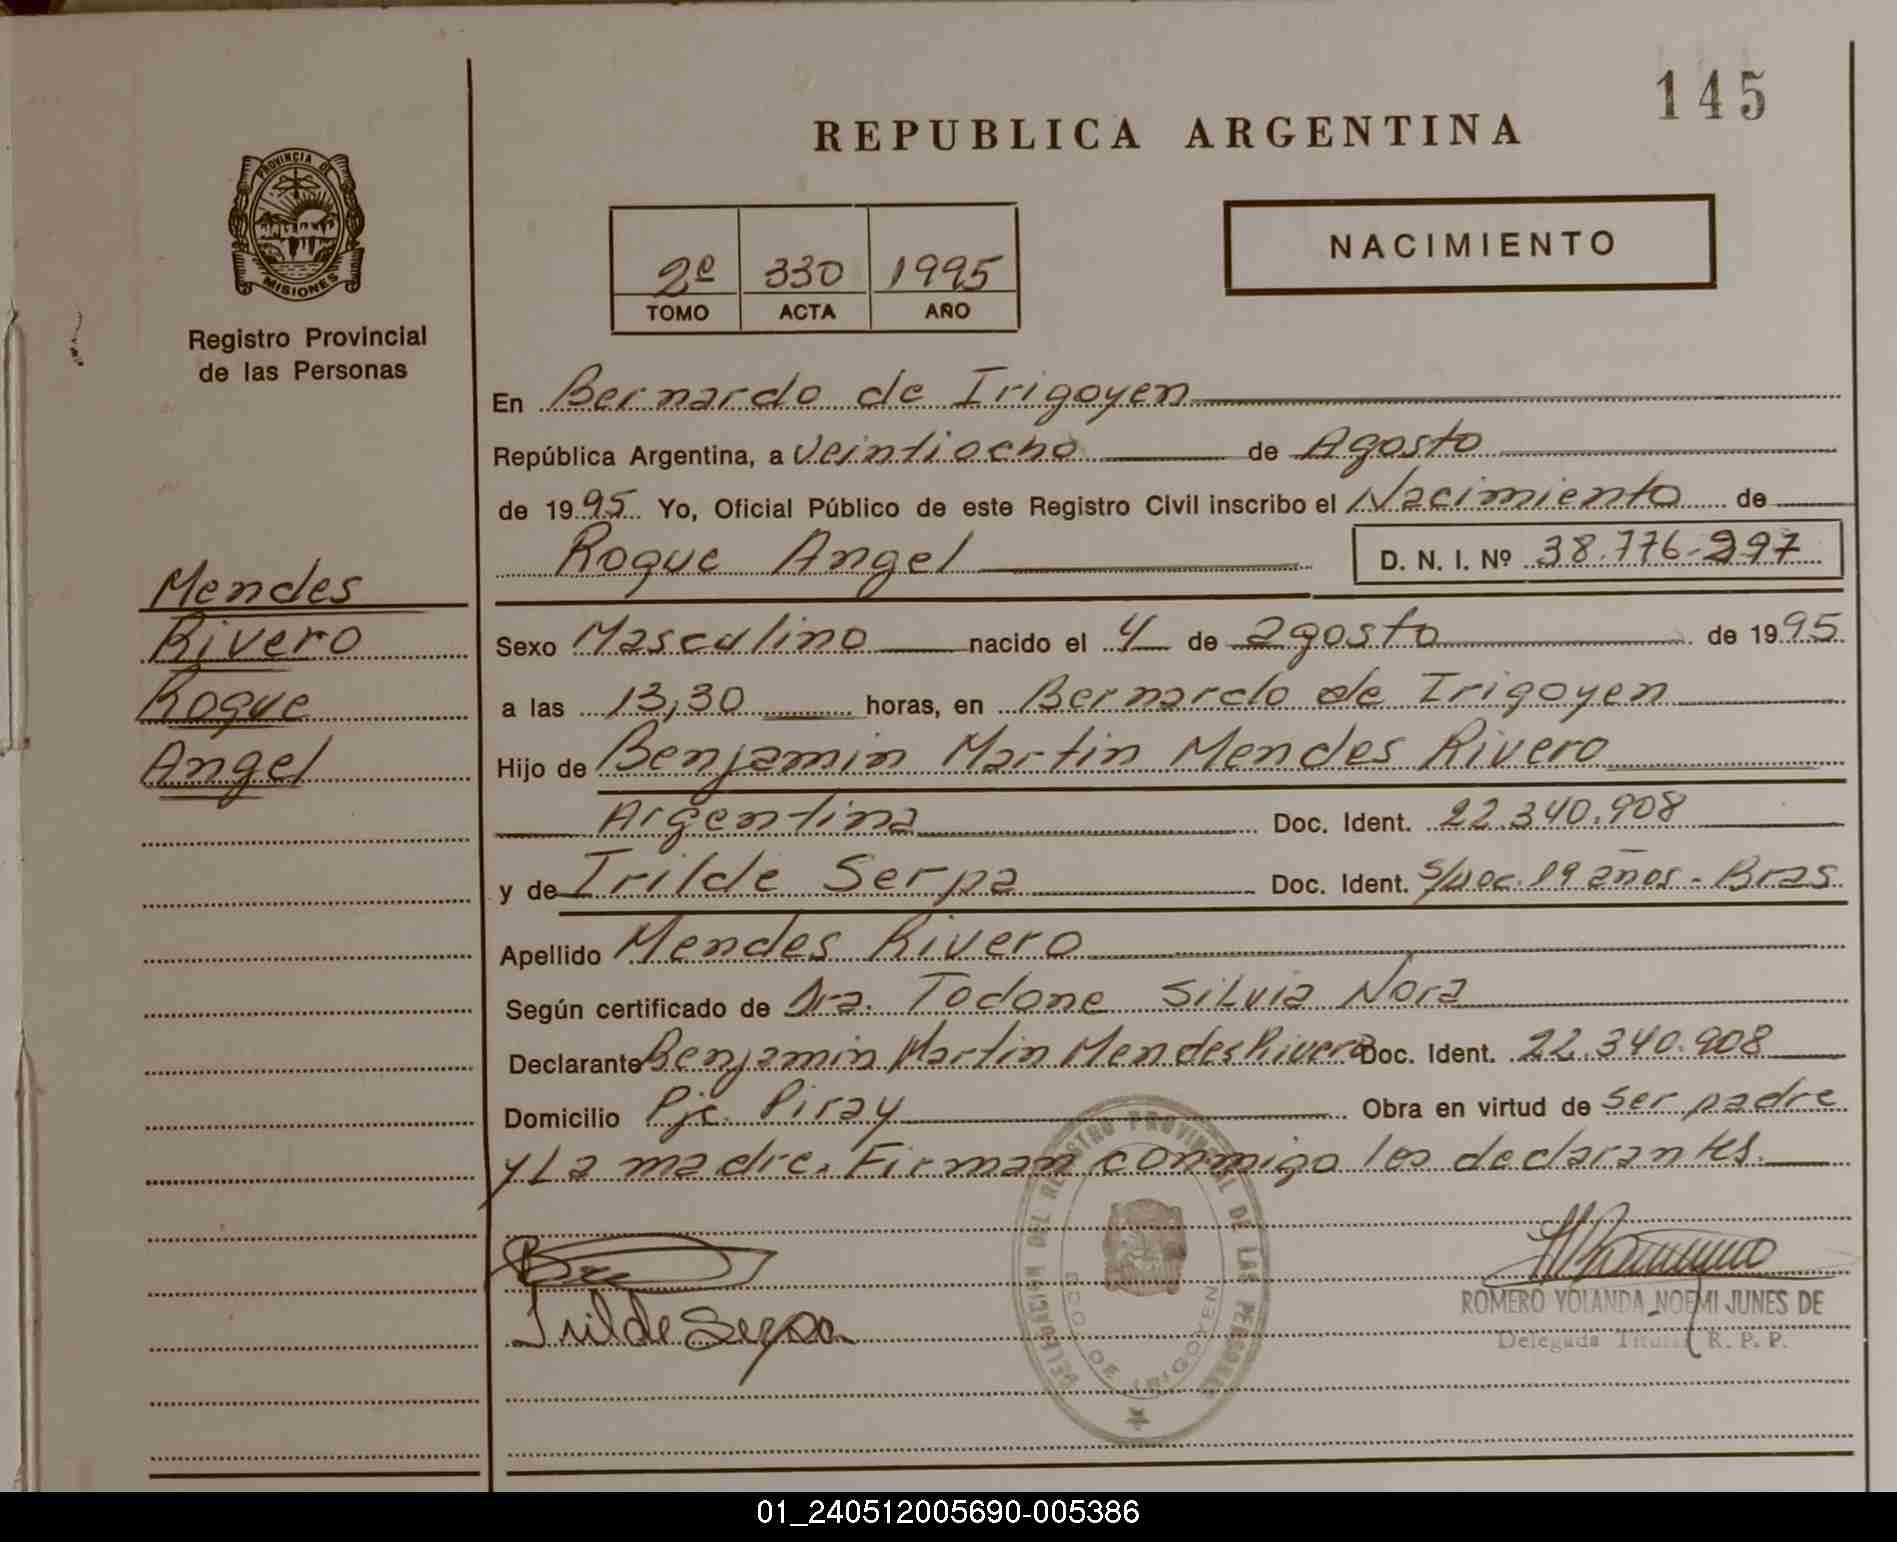 145
REPUBLICA ARGENTINA
PROVINCIA DE
MISIONES
Registro Provincial
de las Personas
2º 330 1995
TOMO ACTA AÑO
NACIMIENTO
En Bernardo de Irigoyen
República Argentina, a Veintiocho de Agosto
de 1995 Yo, Oficial Público de este Registro Civil inscribo el Nacimiento de
Roque Angel D. N. I. Nº 38.776-297
Mendes
Rivero
Roque
Angel
Sexo Masculino nacido el 4 de agosto de 1995
a las 13,30 horas, en Bernardo de Irigoyen
Hijo de Benjamin Martin Mendes Rivero
Argentina Doc. Ident. 22.340.908
y de Irilde Serpa Doc. Ident. S/Doc. 19 años - Bras.
Apellido Mendes Rivero
Según certificado de Dra. Todone Silvia Nora
Declarante Benjamin Martin Mendes Rivero Doc. Ident. 22.340.908
Domicilio Pje. Piray Obra en virtud de ser padre
y La madre. Firman conmigo los declarantes.
DELEGACION DEL REGISTRO PROVINCIAL DE LAS PERSONAS
BDO DE IRIGOYEN
Irilde Serpa
ROMERO YOLANDA NOEMI JUNES DE
Delegada Titular R. P. P.
01_240512005690-005386